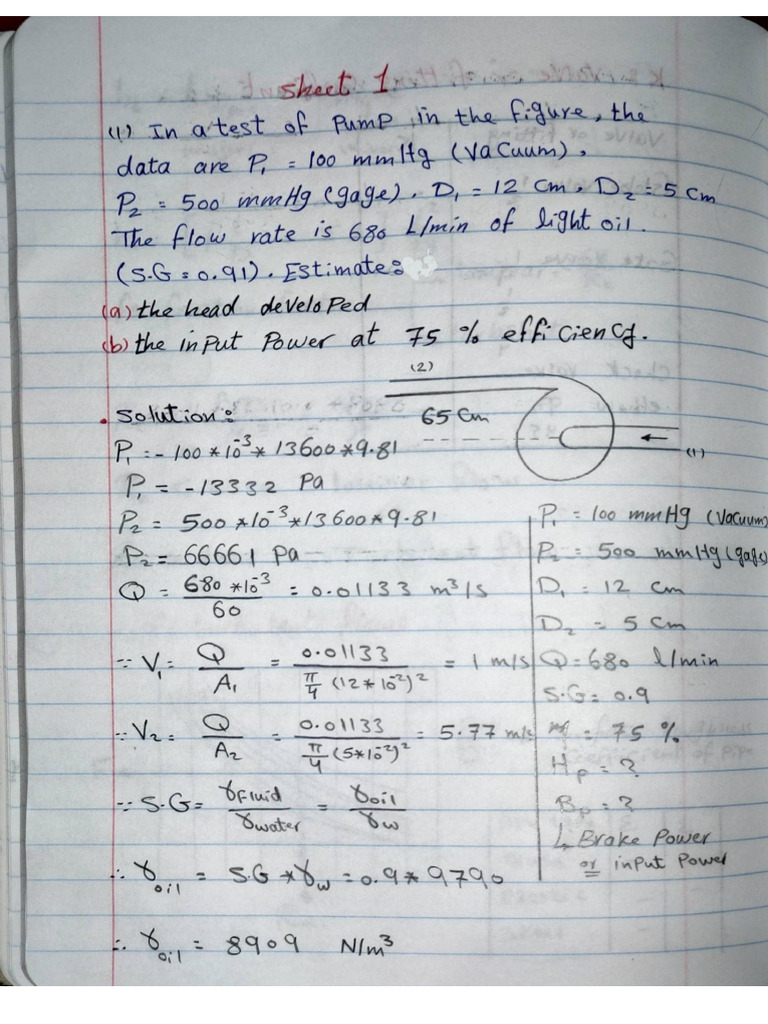 sheet 1
(1) In a test of Pump in the figure, the
data are P₁ = 100 mmHg (Vacuum),
P₂ = 500 mmHg (gage), D₁ = 12 cm, D₂ = 5 cm
The flow rate is 680 L/min of light oil.
(S.G = 0.91). Estimate:
(a) the head developed
(b) the input Power at 75 % efficiency.
(2)
65 cm
(1)
• Solution:
P₁ = - 100 * 10⁻³ * 13600 * 9.81
P₁ = - 13332 Pa
P₂ = 500 * 10⁻³ * 13600 * 9.81
P₂ = 66661 Pa
Q = 680 * 10⁻³ / 60 = 0.01133 m³/s
∵ V₁ = Q / A₁ = 0.01133 / π/4 (12 * 10⁻²)² = 1 m/s
∵ V₂ = Q / A₂ = 0.01133 / π/4 (5 * 10⁻²)² = 5.77 m/s
∵ S.G = γFluid / γwater = γoil / γw
∴ γoil = S.G * γw = 0.9 * 9790
∴ γoil = 8909 N/m³
P₁ = 100 mmHg (Vacuum)
P₂ = 500 mmHg (gage)
D₁ = 12 cm
D₂ = 5 cm
Q = 680 l/min
S.G = 0.9
= 75 %
Hp = ?
Bp = ?
↳ Brake Power
or input Power